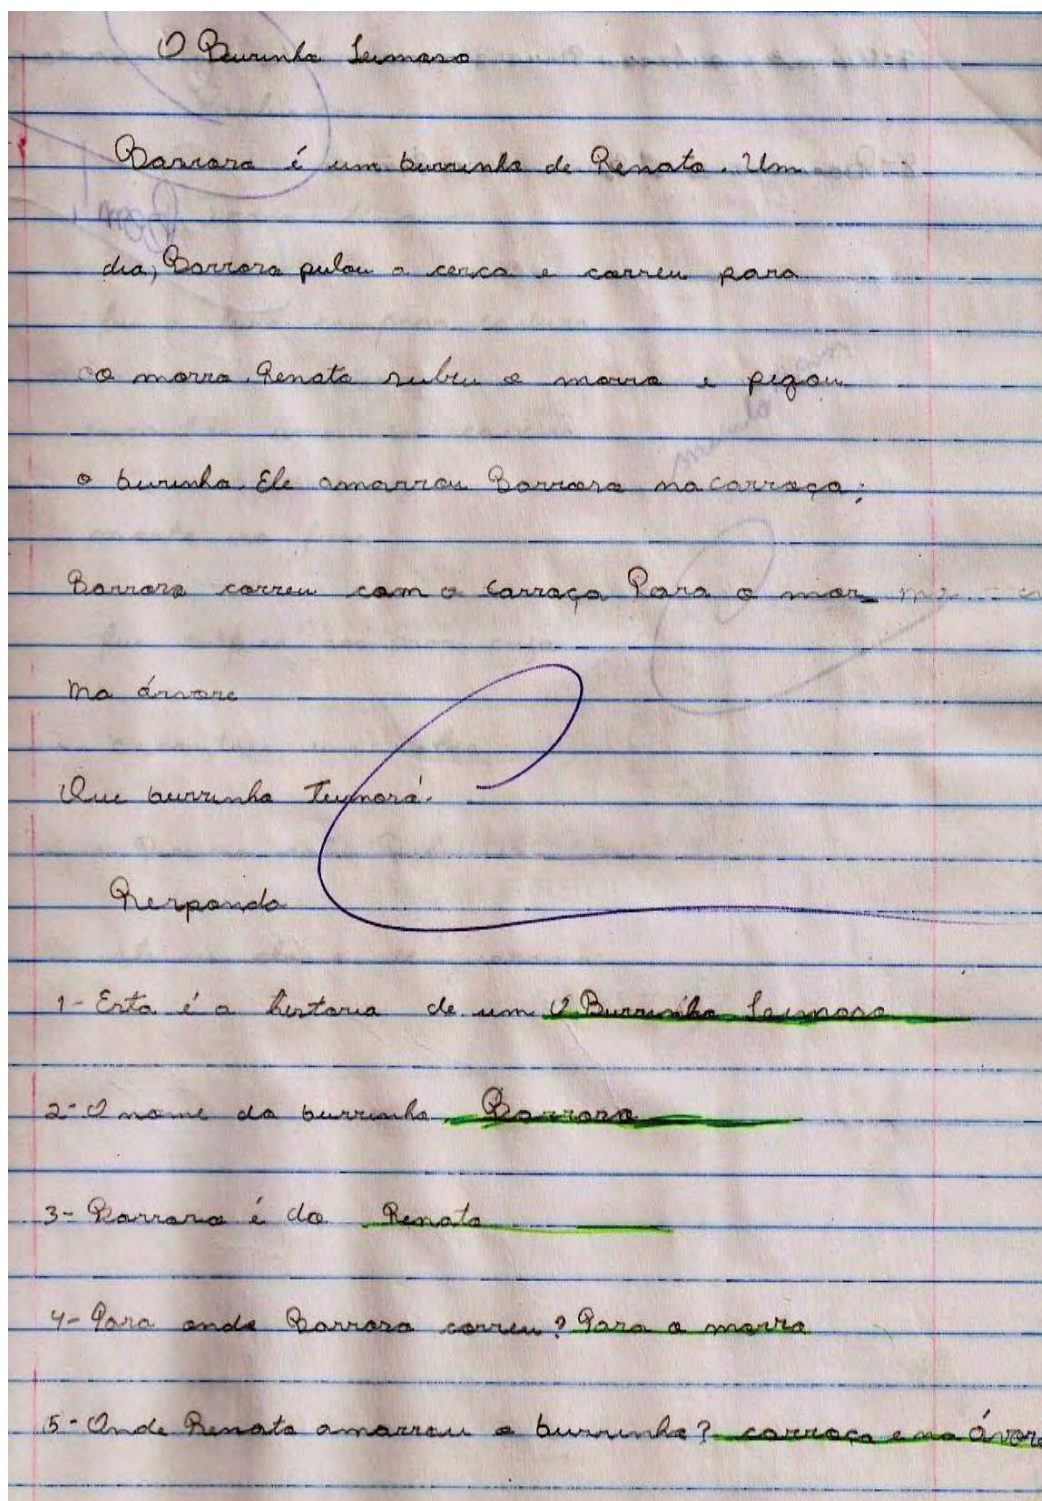 O Burinho Teimoso
Barroso é um burrinho de Renato. Um
dia, Barroso pulou a cerca e correu para
o morro. Renato subiu o morro e pegou
o burinho. Ele amarrou Barroso na carroça;
Barroso correu com a carroça Para o mor
na árvore
Que burrinho Teimoso!
Responda
1- Esta é a historia de um O Burrinho Teimoso
2- O nome do burrinho Barroso
3- Barroso é do Renato
4- Para onde Barroso correu? Para o morro
5- Onde Renato amarrou o burrinho? carroça e na ávore